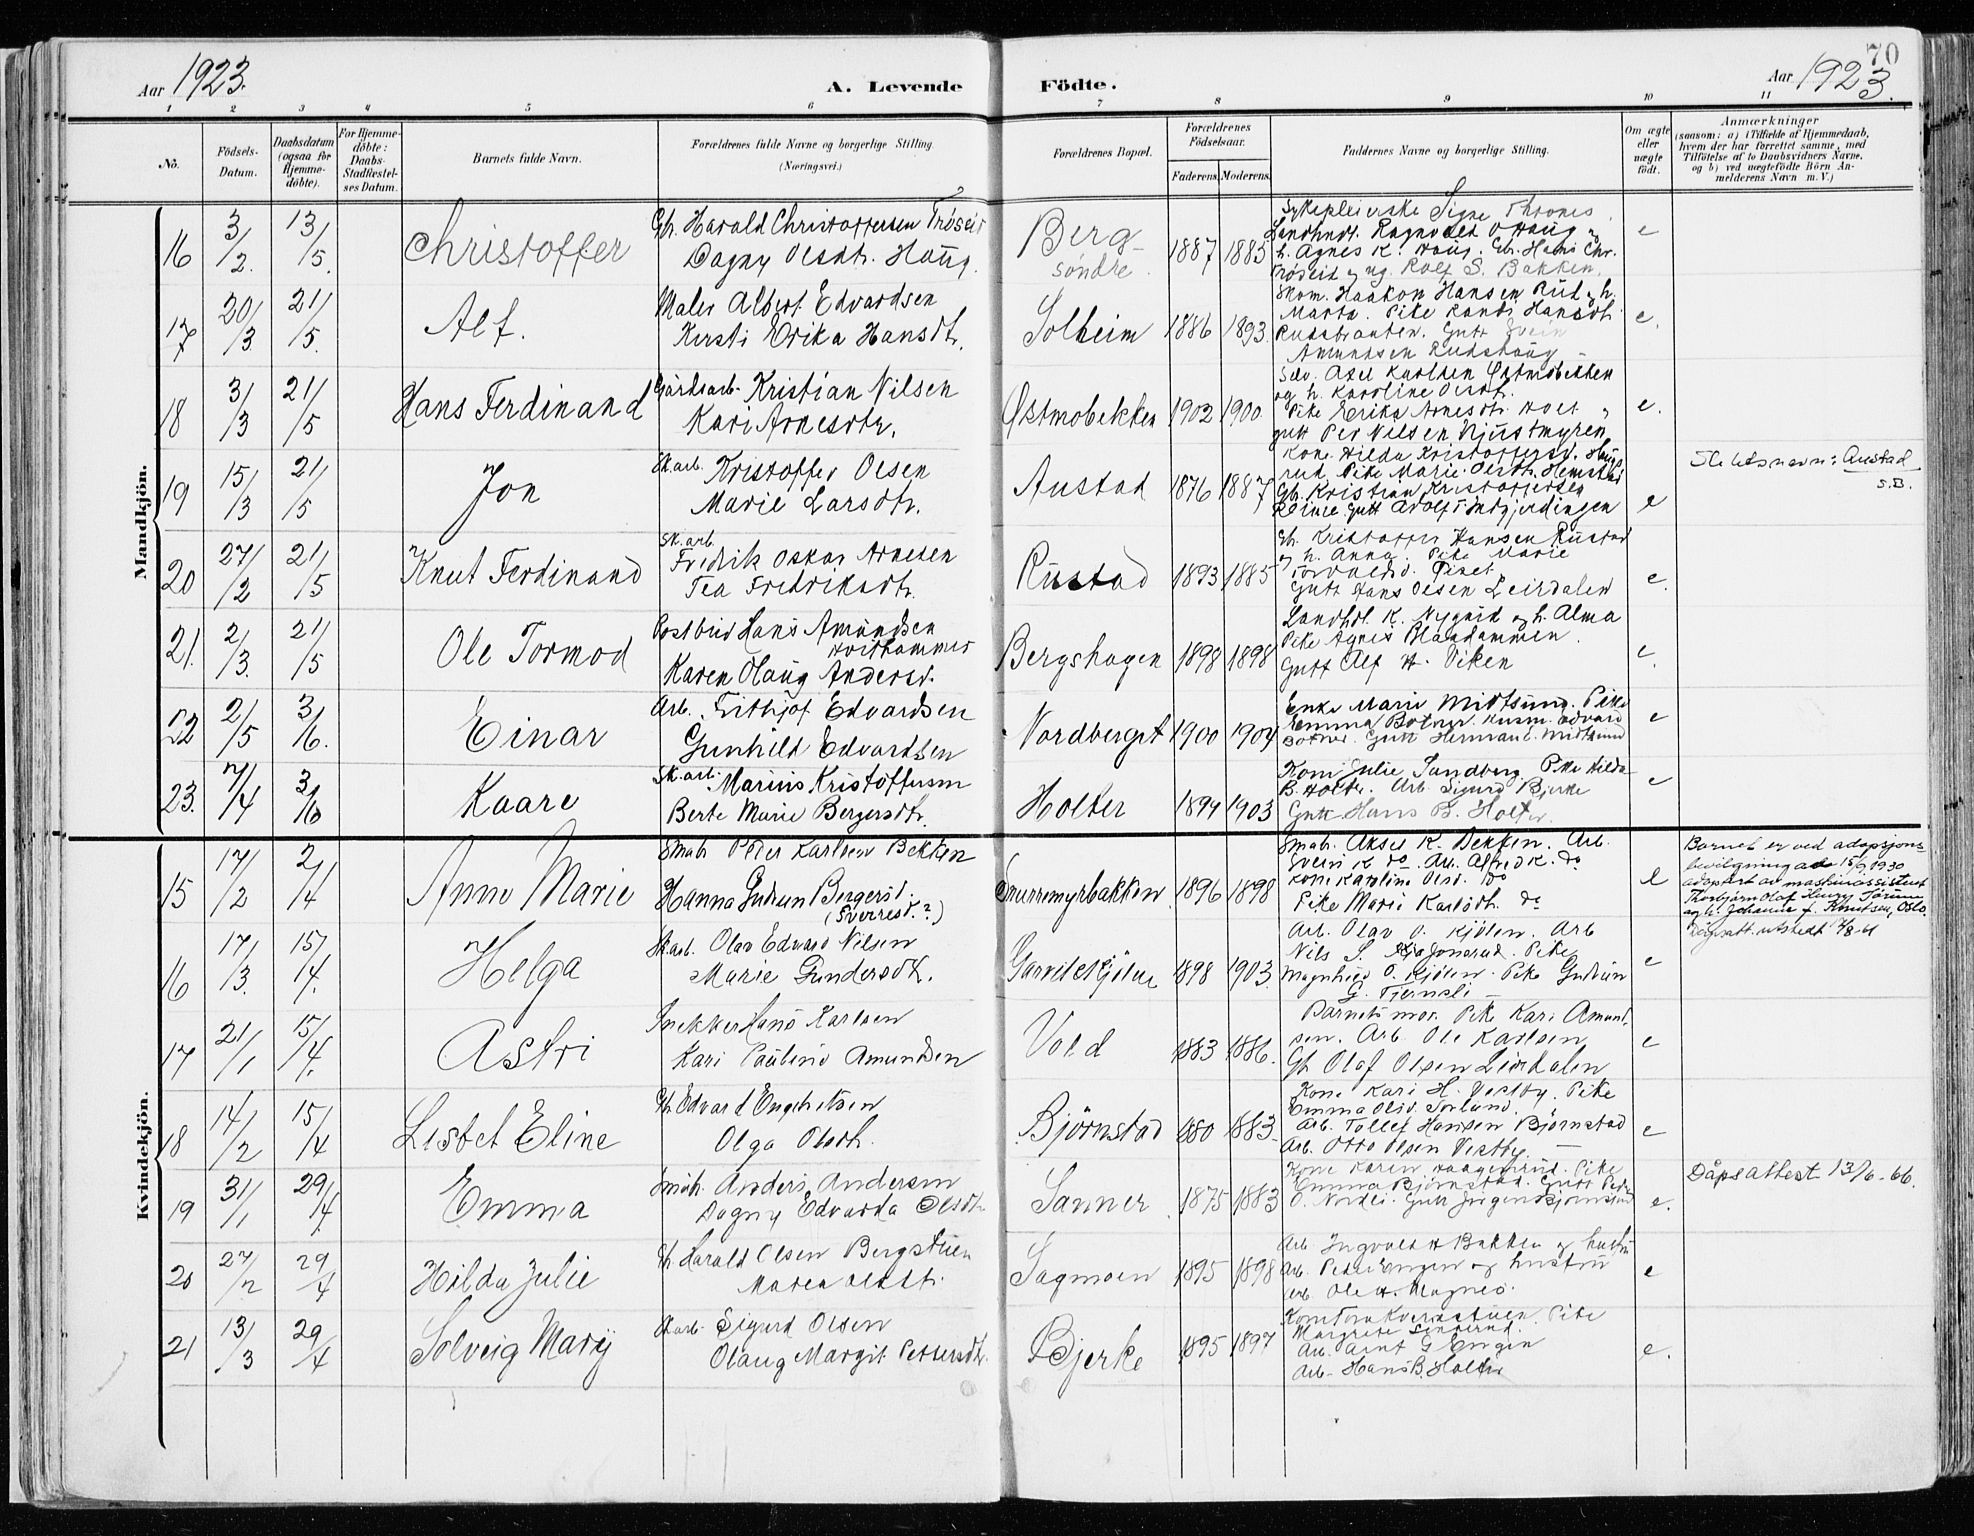 70
Aar 1923.
A. Levende Födte.
Aar 1923.
1 2 3 4 5 6 7 8 9 10 11
No.
Födsels-
Datum.
Daabsdatum
(ogsaa for
Hjemme-
döbte).
For Hjemme-
döbte:
Daabs-
Stadfæstel-
ses Datum.
Barnets fulde Navn.
Forældrenes fulde Navne og borgerlige Stilling.
(Næringsvei.)
Forældrenes Bopæl.
Forældrenes
Födselsaar.
Faderens. Moderens.
Faddernes Navne og borgerlige Stilling.
Om ægte
eller
uægte
födt.
Anmærkninger
(saasom: a) i Tilfælde af Hjemmedaab,
hvem der har forrettet samme, med
Tilföielse af to Daabsvidners Navne,
og b) ved uægtefödte Börn An-
melderens Navn m. V.)
Mandkjön.
16 3/2. 13/5. Christoffer Gb. Harald Christoffersen Trøseid
Dagny Olsdtr. Haug.
Berg søndre. 1887 1885 e
Sykepleierske Signe Thrones.
Landhndl. Ragnvald O Haug og
h. Agnes K. Haug. Gb. Hans Chr.
Trøseid og ug. Rolf S. Bakken.
17 20/3 21/5. Alf. Maler Albert Edvardsen
Kersti Erika Hansdtr.
Solheim 1886 1893. e.
Skom. Haakon Hansen Rud og h.
Marta. Pike Randi Hansdtr
Rudsbraaten. Gutt Svein
Amundsen Rudshaug
18 3/3 21/5 Hans Ferdinand Gårdsarb. Kristian Nilsen
Kari Arnesdtr.
Østmobekken 1902 1900 e.
Selv. Axel Karlsen Østmobekken
og h. Karoline Olsdtr.
Pike Erika Arnesdtr. Holt og
gutt Per Nilsen Kjustmyren
19 15/3 21/5 Jon Sk.arb. Kristoffer Olsen
Marie Larsdtr.
Austad 1876 1887 e
Kone Hilda Kristoffersd. Haug-
rud. Pike Marie Olsdtr. Hemstad
Gb. Kristian Kristoffersen
gutt Adolf
Slektsnavn: Austad
S.B.
20 27/2 21/5 Knut Ferdinand Sk.arb.
Fredrik Oskar Arnesen
Tea Fredriksdtr.
Rustad 1893 1885 e.
Gb. Kristoffer Hansen Rustad
og h. Anna. Pike Marie
Torvaldsd.
Gutt Hans Olsen Leirdalen
21. 2/3. 21/5 Ole Tormod Postbud Hans Amundsen
Karen Olaug Andersd.
Bergshagen 1898 1898 e.
Landhdl. K. Nygård og h. Alma
Pike Agnes Blaadammen.
Gutt Alf H. Viken
22 2/5 3/6. Einar Arb. Frithjof Edvardsen
Gunhild Edvardsen
Nordberget 1900 1904 e
Enke Marie Midtsund. Pike
Emma Botner. Kusm. Edvard
Botner. Gutt Herman E. Midtsund
23. 7/4 3/6 Kaare Sk.arb. Marius Kristoffersen
Berte Marie Bergersdtr.
Holter 1894 1903 e
Kone Julie Sundberg Pike Hilda
B. Holter. Arb. Sigurd Bjerke
Gutt Hans B. Holter.
Kvindekjön.
15 17/2 2/4 Anne Marie Småb. Peder Karlsen Bekken
Hanna Gudrun Bergersd.
(Sverresd.?)
Snurremyrbakken 1896 1898 e
Småb. Aksel K. Bekken. Arb.
Svein K do. Arb. Alfred K. do
Kone Karoline Olsd. Do
Pike Marie Karlsdtr. do
Barnet er ved adopsjons-
bevilgning av 15/9 1930
adoptert av maskinassistent
Thorbjørn Olaf
og h. Johanne f. Knutsen, Oslo.
Dåpsatt. utstedt 7/8-61
16 17/3. 15/4. Helga Sk.arb. Olav Edvard Nilsen
Marie Gundersdtr.
1898 1903. e
Arb. Olav O. Kjölen. Arb
Nils S. Pike
Magnhild O. Kjölen. Pike Gudrun
G. Tjernsli
17 21/1 15/4. Astri Snekker Hans Karlsen
Kari Pauline Amundsen
Vold 1883 1886. e
Barnets mor. Pike Kari Amund-
sen. Arb. Ole Karlsen
Gb Olaf Olsen Leirdalen
18 14/2 15/4 Lisbet Eline Gb Edvard Engebretsen
Olga Olsdtr.
Björnstad 1880 1883. e
Kone Kari H. Vestby. Pike
Emma Olsd. Sørlund.
Arb. Tollef Hansen Bjørnstad
Arb. Otto Olsen Vestby
19 31/1 29/4 Emma Småb. Anders Andersen
Dagny Edvarda Olsdtr
Sanner 1875 1883 e.
Kone Karen Haagenrud. Pike
Emma Bjørnstad. Gutt Peder
O. Nordli. Gutt Jørgen Bjørnstad
Dåpsattest 13/6-66.
20 27/2 29/4 Hilda Julie Gb Harald Olsen Bergstuen
Maren Olsdtr.
Sagmoen 1895 1898 e
Arb. Ingvald H Bakken og hustru
Arb. Peder Engen og hustru
Arb. Ole H. Magnes.
21 13/3 29/4 Solveig Mary Sk.arb. Sigurd Olsen
Olaug Margit Pettersdtr.
Bjerke 1895 1897 e.
Kone Tora Kvernstuen. Pike
Margrete
Arb. Arnt G Engen
Arb. Hans B. Holter